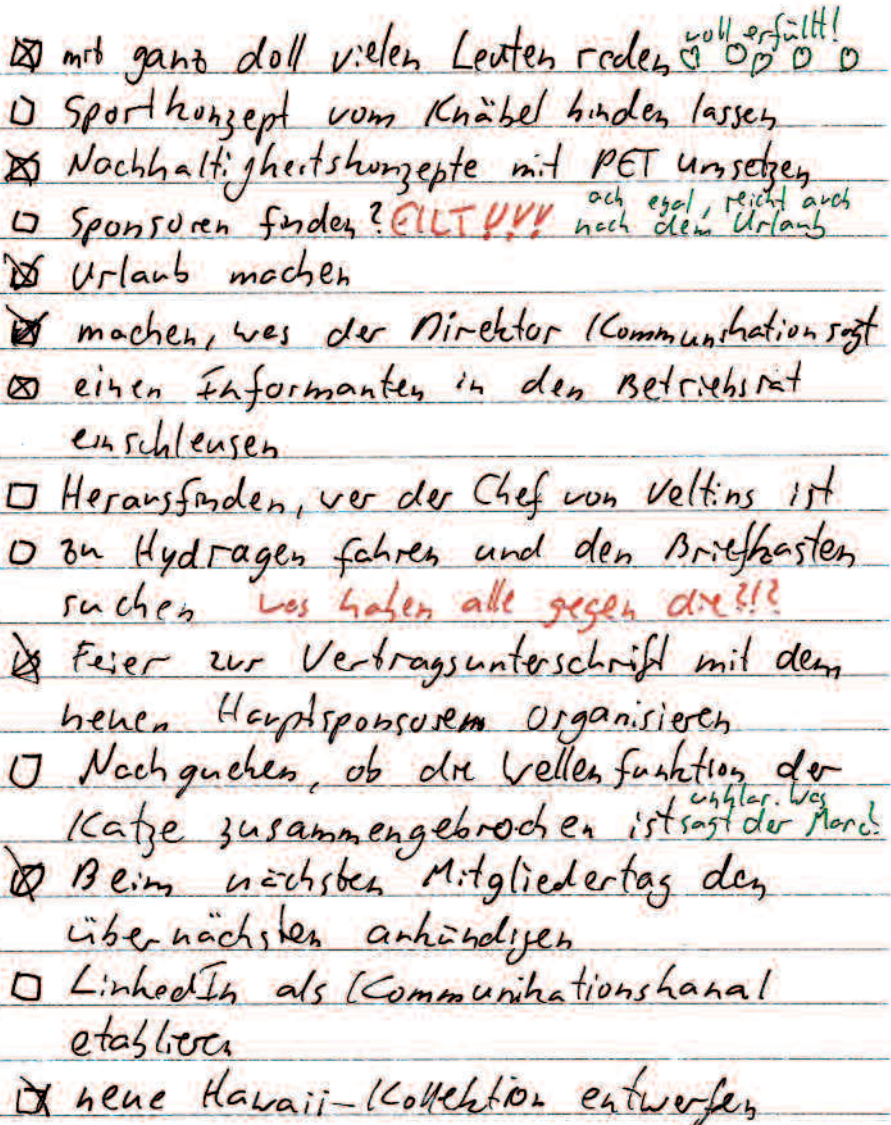 ☒ mit ganz doll vielen Leuten reden voll erfüllt!
☐ Sportkonzept vom Knäbel hinden lassen
☒ Nachhaltigkeitskonzepte mit PET umsetzen
☐ Sponsoren finden? EILT!!! ach egal, reicht auch
nach dem Urlaub
☒ Urlaub machen
☒ machen, was der Direktor Kommunikation sagt
☒ einen Informanten in den Betriebsrat
einschleusen
☐ Herausfinden, wer der Chef von Veltins ist
☐ zu Hydragen fahren und den Briefkasten
suchen was haben alle gegen die?!?
☒ Feier zur Vertragsunterschrift mit dem
neuen Hauptsponsorem organisieren
☐ Nachgucken, ob die Wellenfunktion der
Katze zusammengebrochen ist unklar. Was
sagt der Marc?
☒ Beim nächsten Mitgliedertag den
übernächsten ankündigen
☐ LinkedIn als Kommunikationskanal
etablieren
☒ neue Hawaii-Kollektion entwerfen